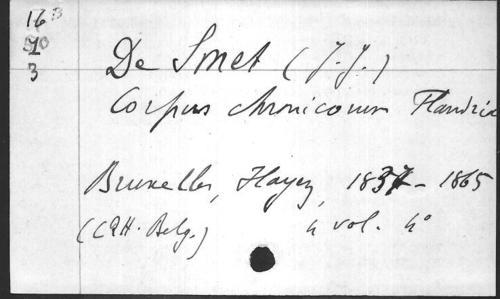 16
3
De Smet (J.J.)
Corpus chronicorum Flandriæ
Bruxelles, Hayez, 1837-1865
(CRH. Belg.) 4 vol. 4°